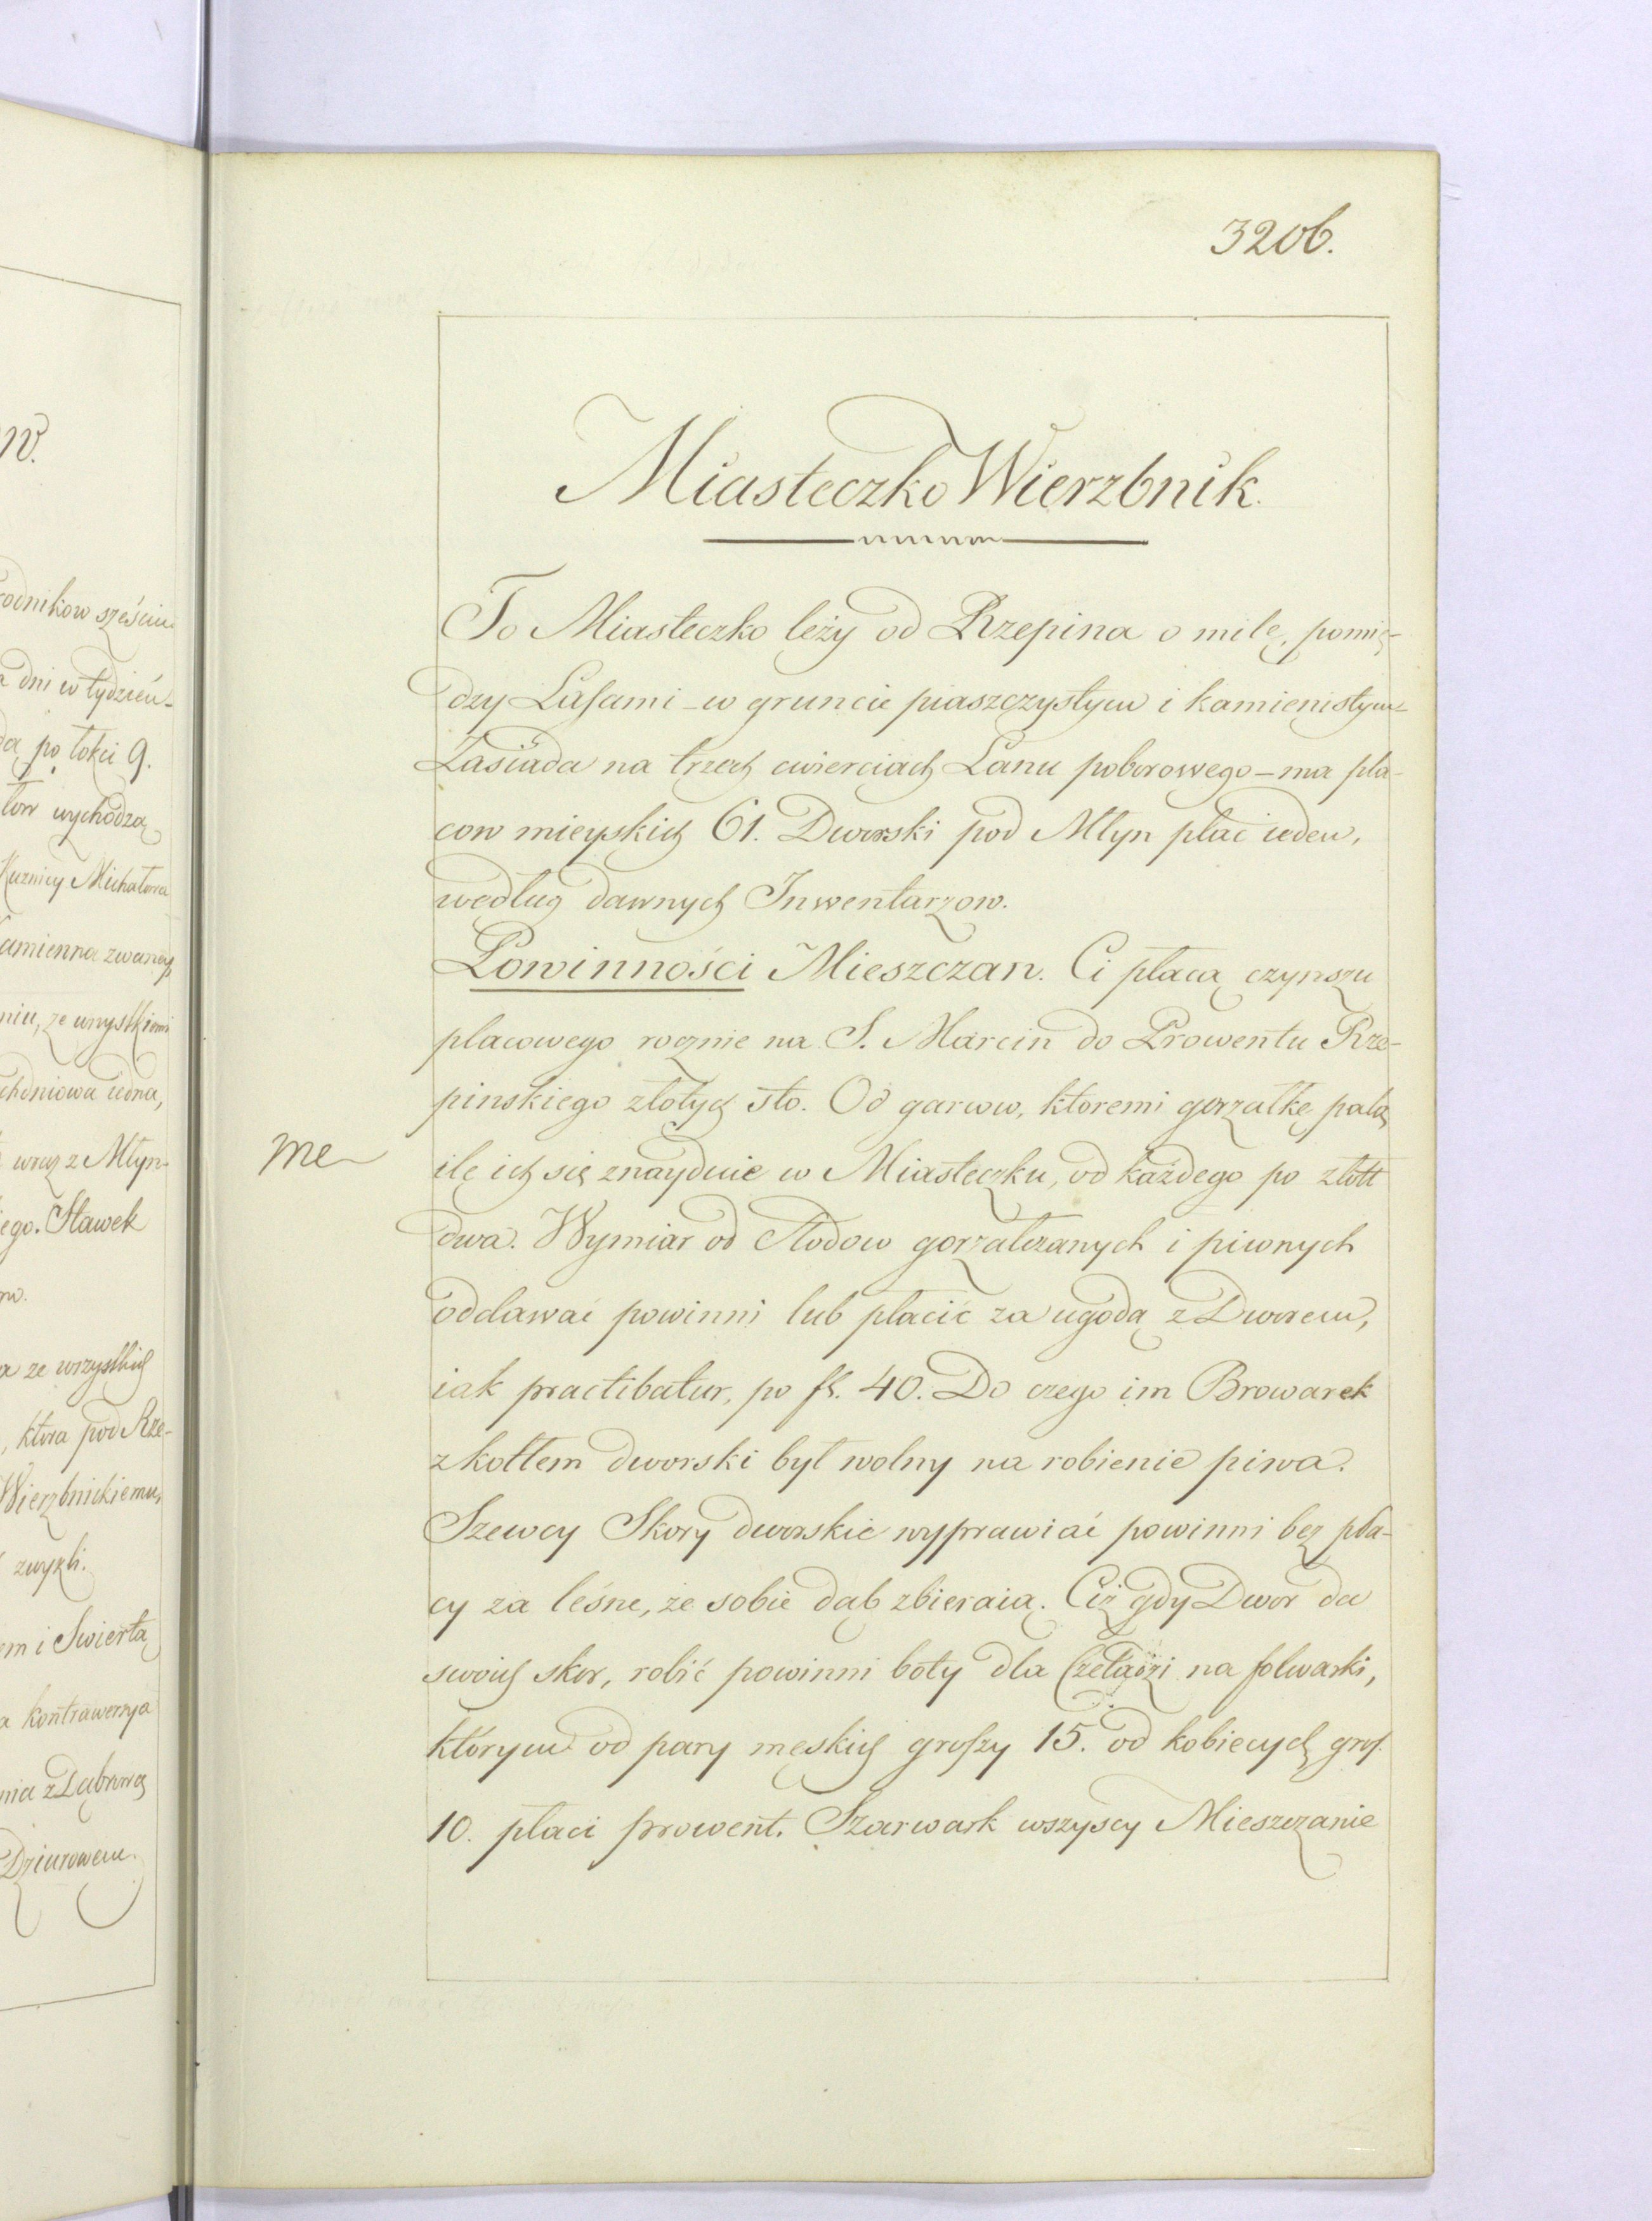 3206.
Miasteczko Wierzbnik.
To Miasteczko leży od Rzepina o milę, pomię-
dzy Lasami - w gruncie piaszczystym i kamienistym
Zasiada na trzech cwierciach Łanu poborowego - ma pla-
cow mieyskich 61. Dworski pod Młyn plac ieden,
według dawnych Inwentarzow.
Powinności Mieszczan. Ci płacą czynszu
placowego rocznie na S. Marcin do Prowentu Rze-
pinskiego złotych sto. Od garcow, ktoremi gorzałkę palą
me
ile ich się znayduie w Miasteczku, od każdego po złott
dwa. Wymiar od Słodow gorzałczanych i piwnych
oddawać powinni lub płacić za ugodą z Dworem,
iak practibatur, po fl. 40. Do czego im Browarek
z kotłem dworski był wolny na robienie piwa.
Szewcy Skory dworskie wyprawiać powinni bez pła-
cy za leśne, ze sobie dąb zbieraią. Ciż gdy Dwor da
swoich skor, robić powinni boty dla Czeladzi na folwarki,
którym od pary męskich groszy 15. od kobiecych gros.
10. płaci prowent. Szarwark wszyscy Mieszczanie
w.
rodnikow sześciu
dni w tydzień
po łokci 9.
wychodzą
Kuznicy Michałowa
amienna zwaney
niu, ze wszystkiemi
chodniowa iedna,
wraz z Młyn-
iego. Stawek
ze wszystkich
, ktora pod Rze-
Wierzbnickiemu,
zwykli.
em i Swiertą
a kontrawersya
nia z Dąbrową
Dziurowem.